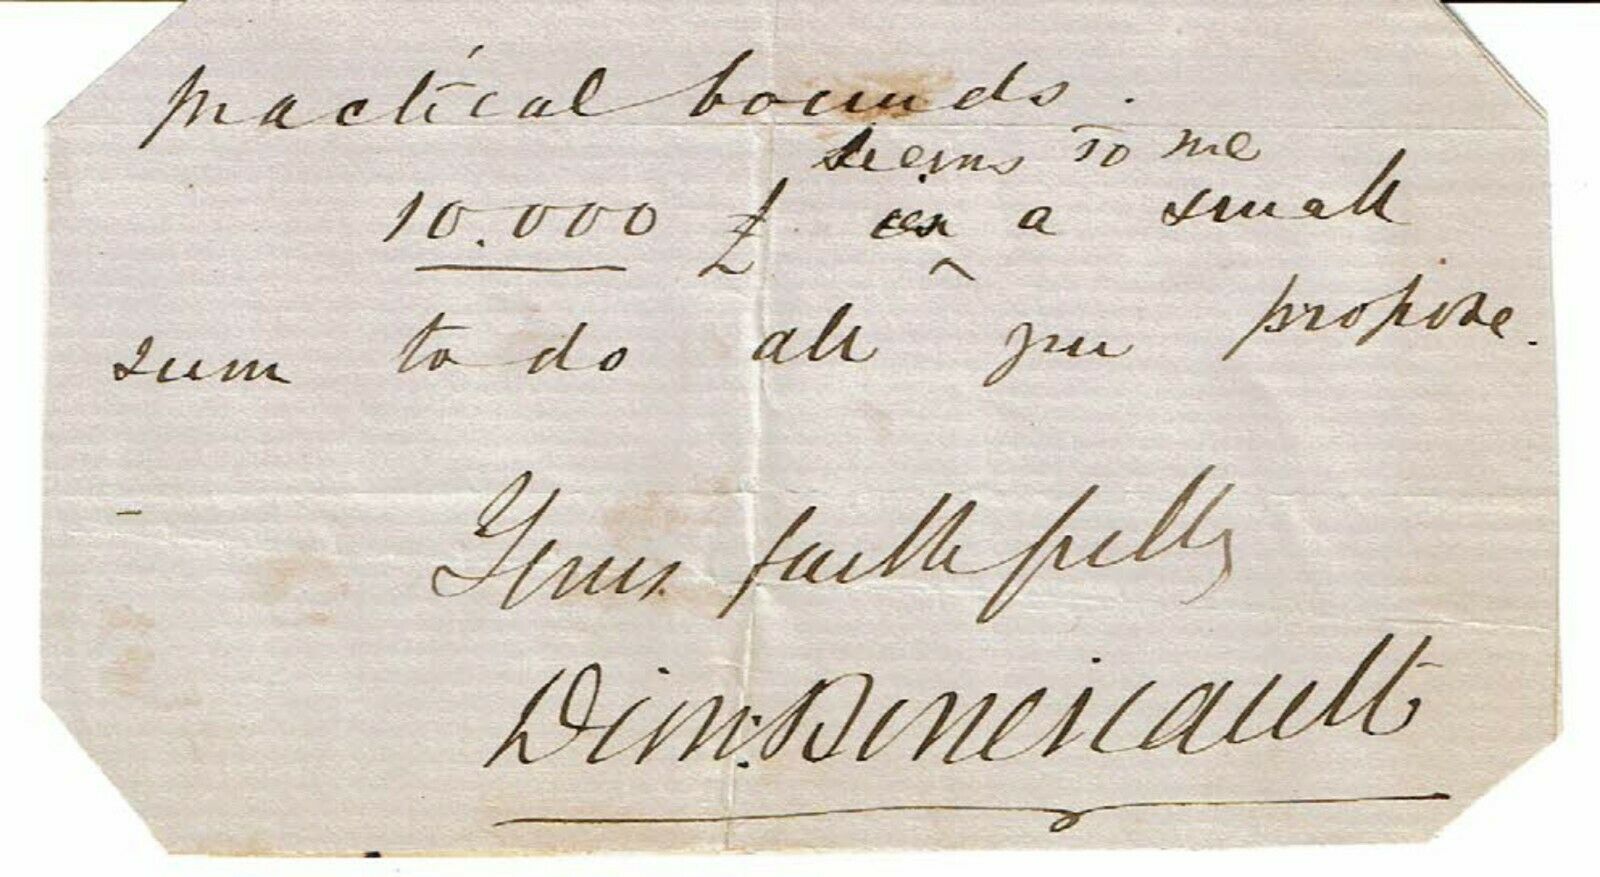 practical bounds.
seems to me
10.000 £ is a small
sum to do all you propose.
Yours faithfully
Dion: Boucicault